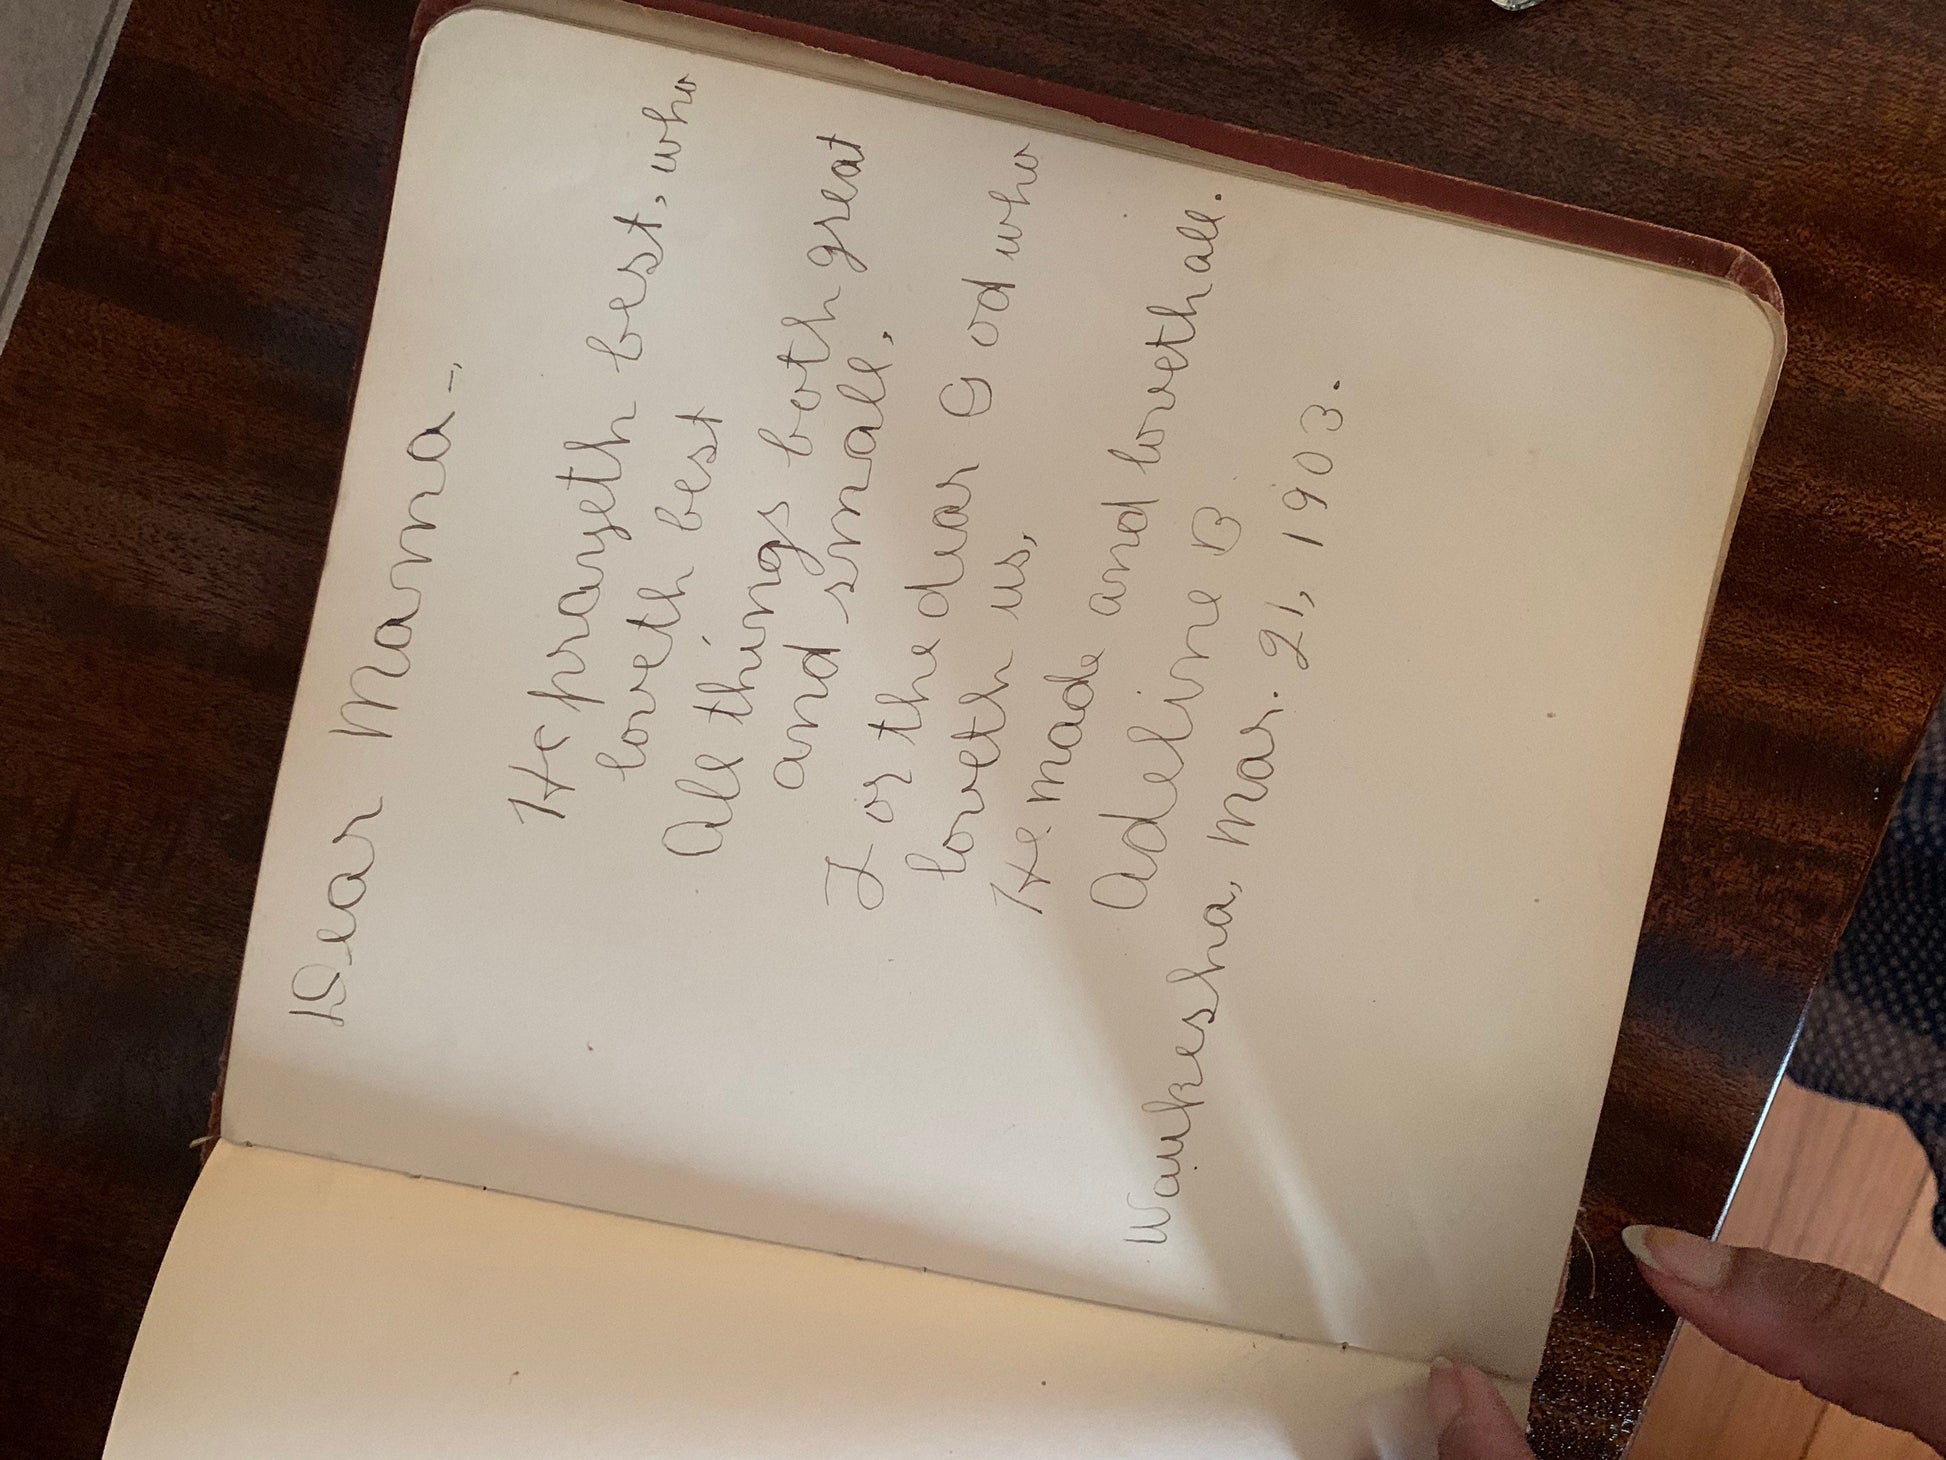 Dear Mama-,
He prayeth best, who
loveth best
All things both great
and small.
For the dear God who
loveth us,
He made and loveth all.
Adeline B
Waukesha, Mar. 21, 1903.